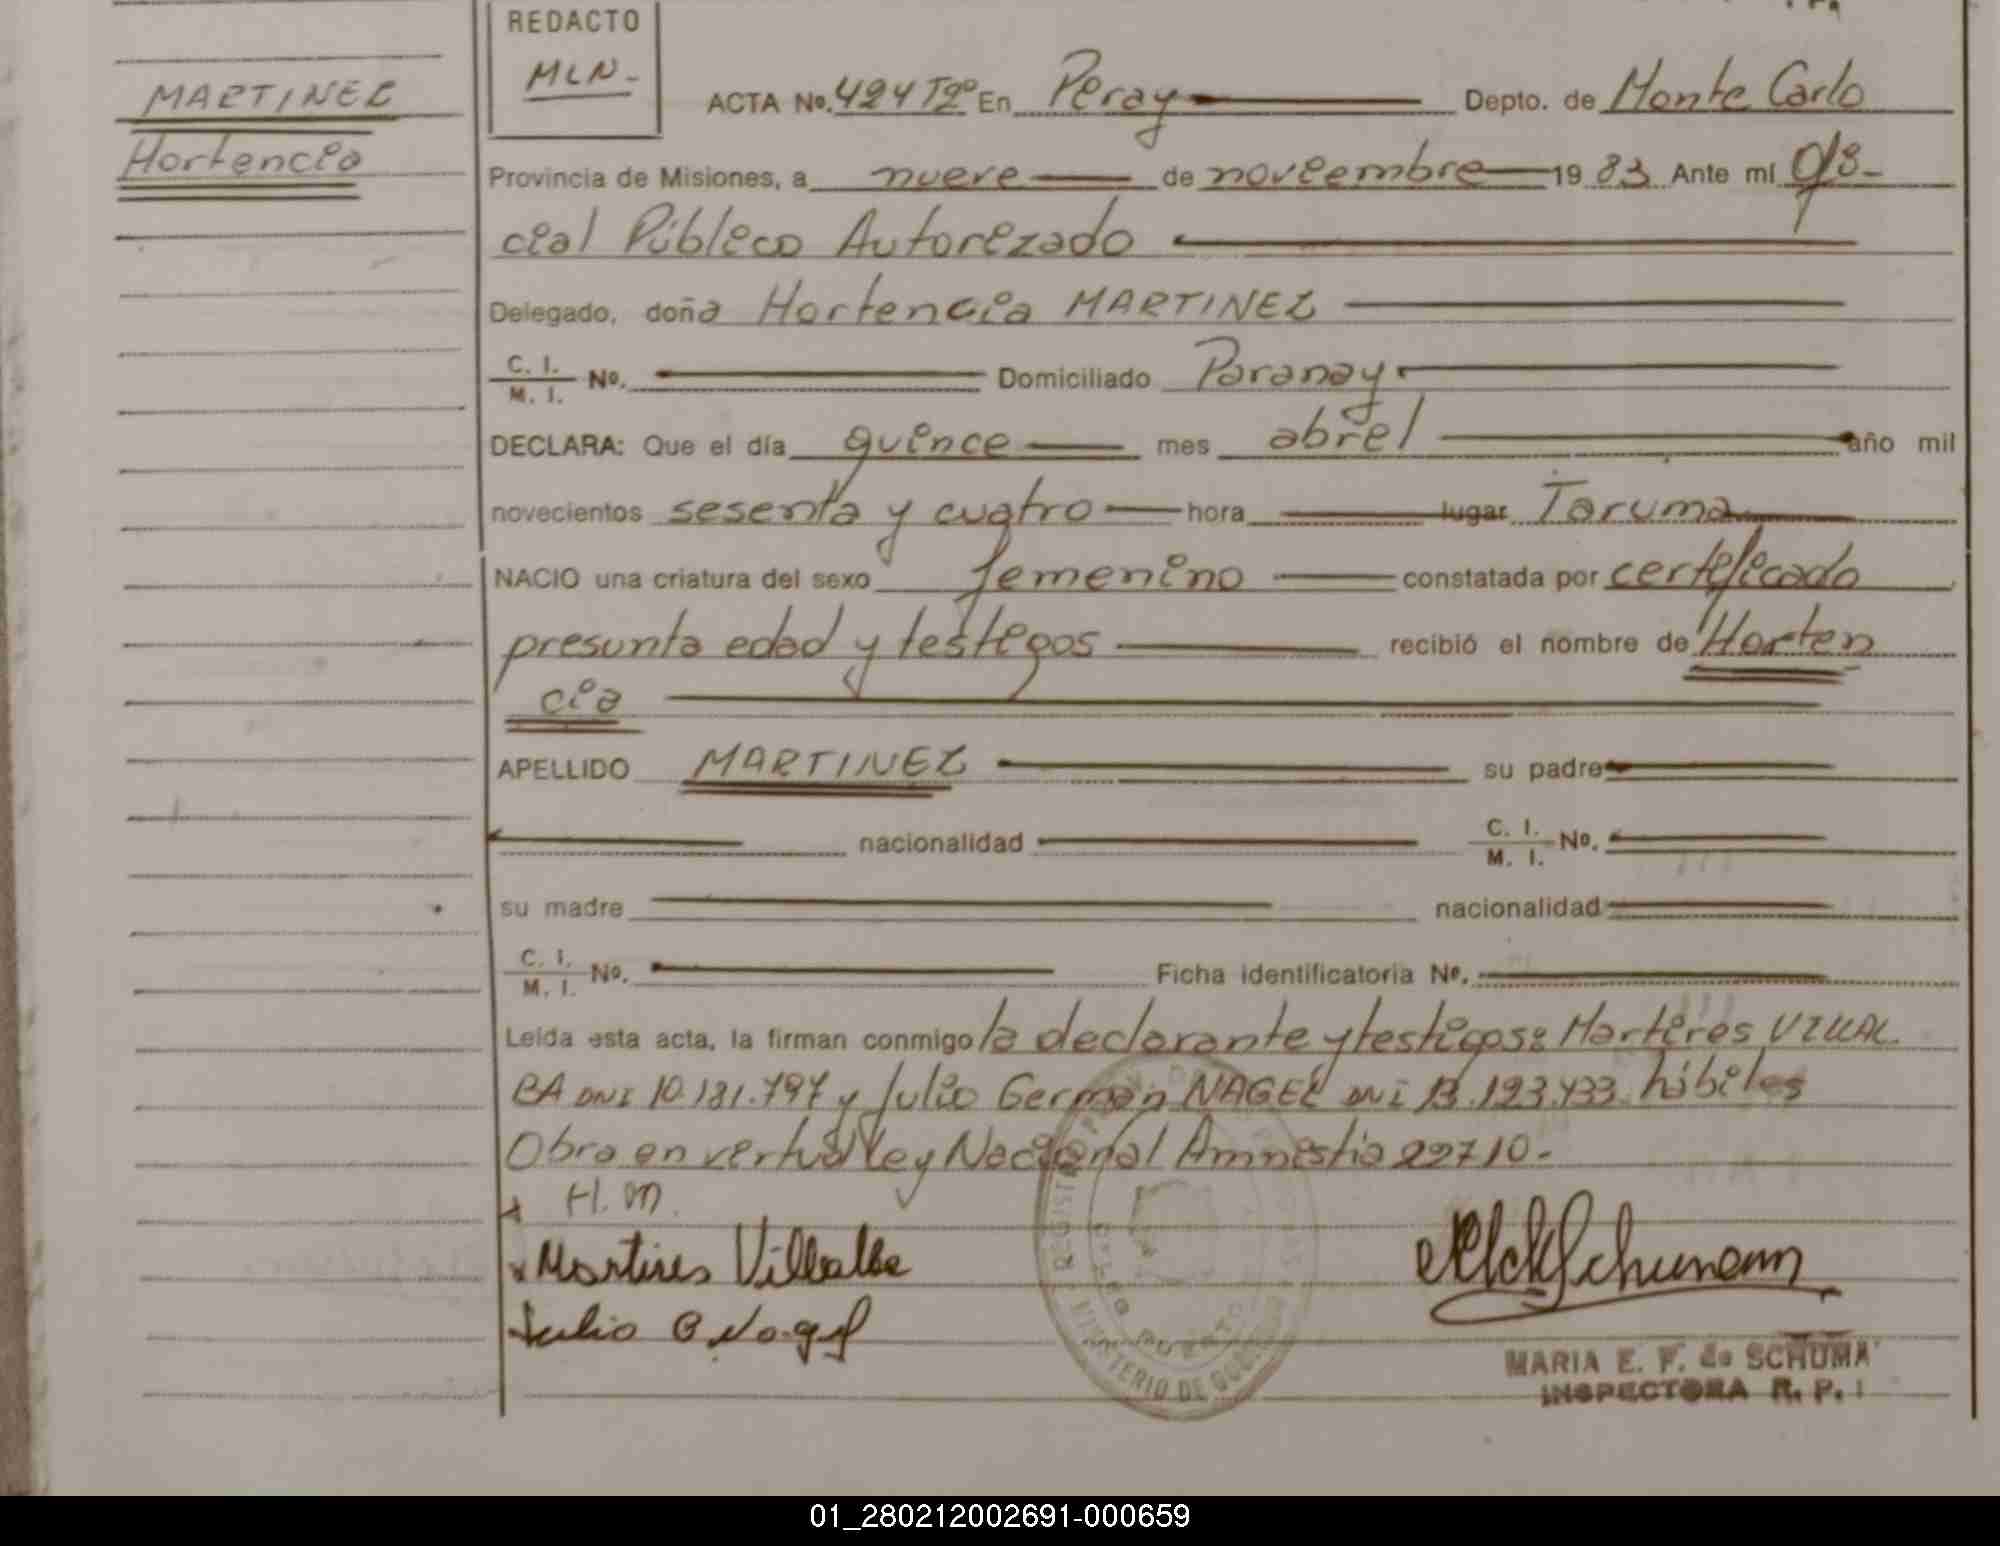 MARTINEZ
Hortencia
REDACTO
MLN.
ACTA No. 424 Tº2º En Peray Depto. de Monte Carlo
Provincia de Misiones, a nueve de noviembre 1983 Ante mí Ofi-
cial Público Autorizado
Delegado, doña Hortencia MARTINEZ
C. I. / M. I. No. Domiciliado Paranay
DECLARA: Que el día quince mes abril año mil
novecientos sesenta y cuatro hora lugar Taruma
NACIO una criatura del sexo femenino constatada por certificado
presunta edad y testigos recibió el nombre de Horten
cia
APELLIDO MARTINEZ su padre
nacionalidad C. I. / M. I. No.
su madre nacionalidad
C. I. / M. I. No. Ficha identificatoria No.
Leída esta acta, la firman conmigo la declarante y testigos: Martires VILLAL
BA DNI 10.181.797 y Julio German NAGEL DNI 13.193.433 hábiles
Obra en vertud Ley Nacional Amnistia 22710.-
H. M.
Martires Villalba
Julio G Nagel
MINISTERIO DE GOBIERNO
MARIA E. F. de SCHUMA
INSPECTORA R. P.
01_280212002691-000659